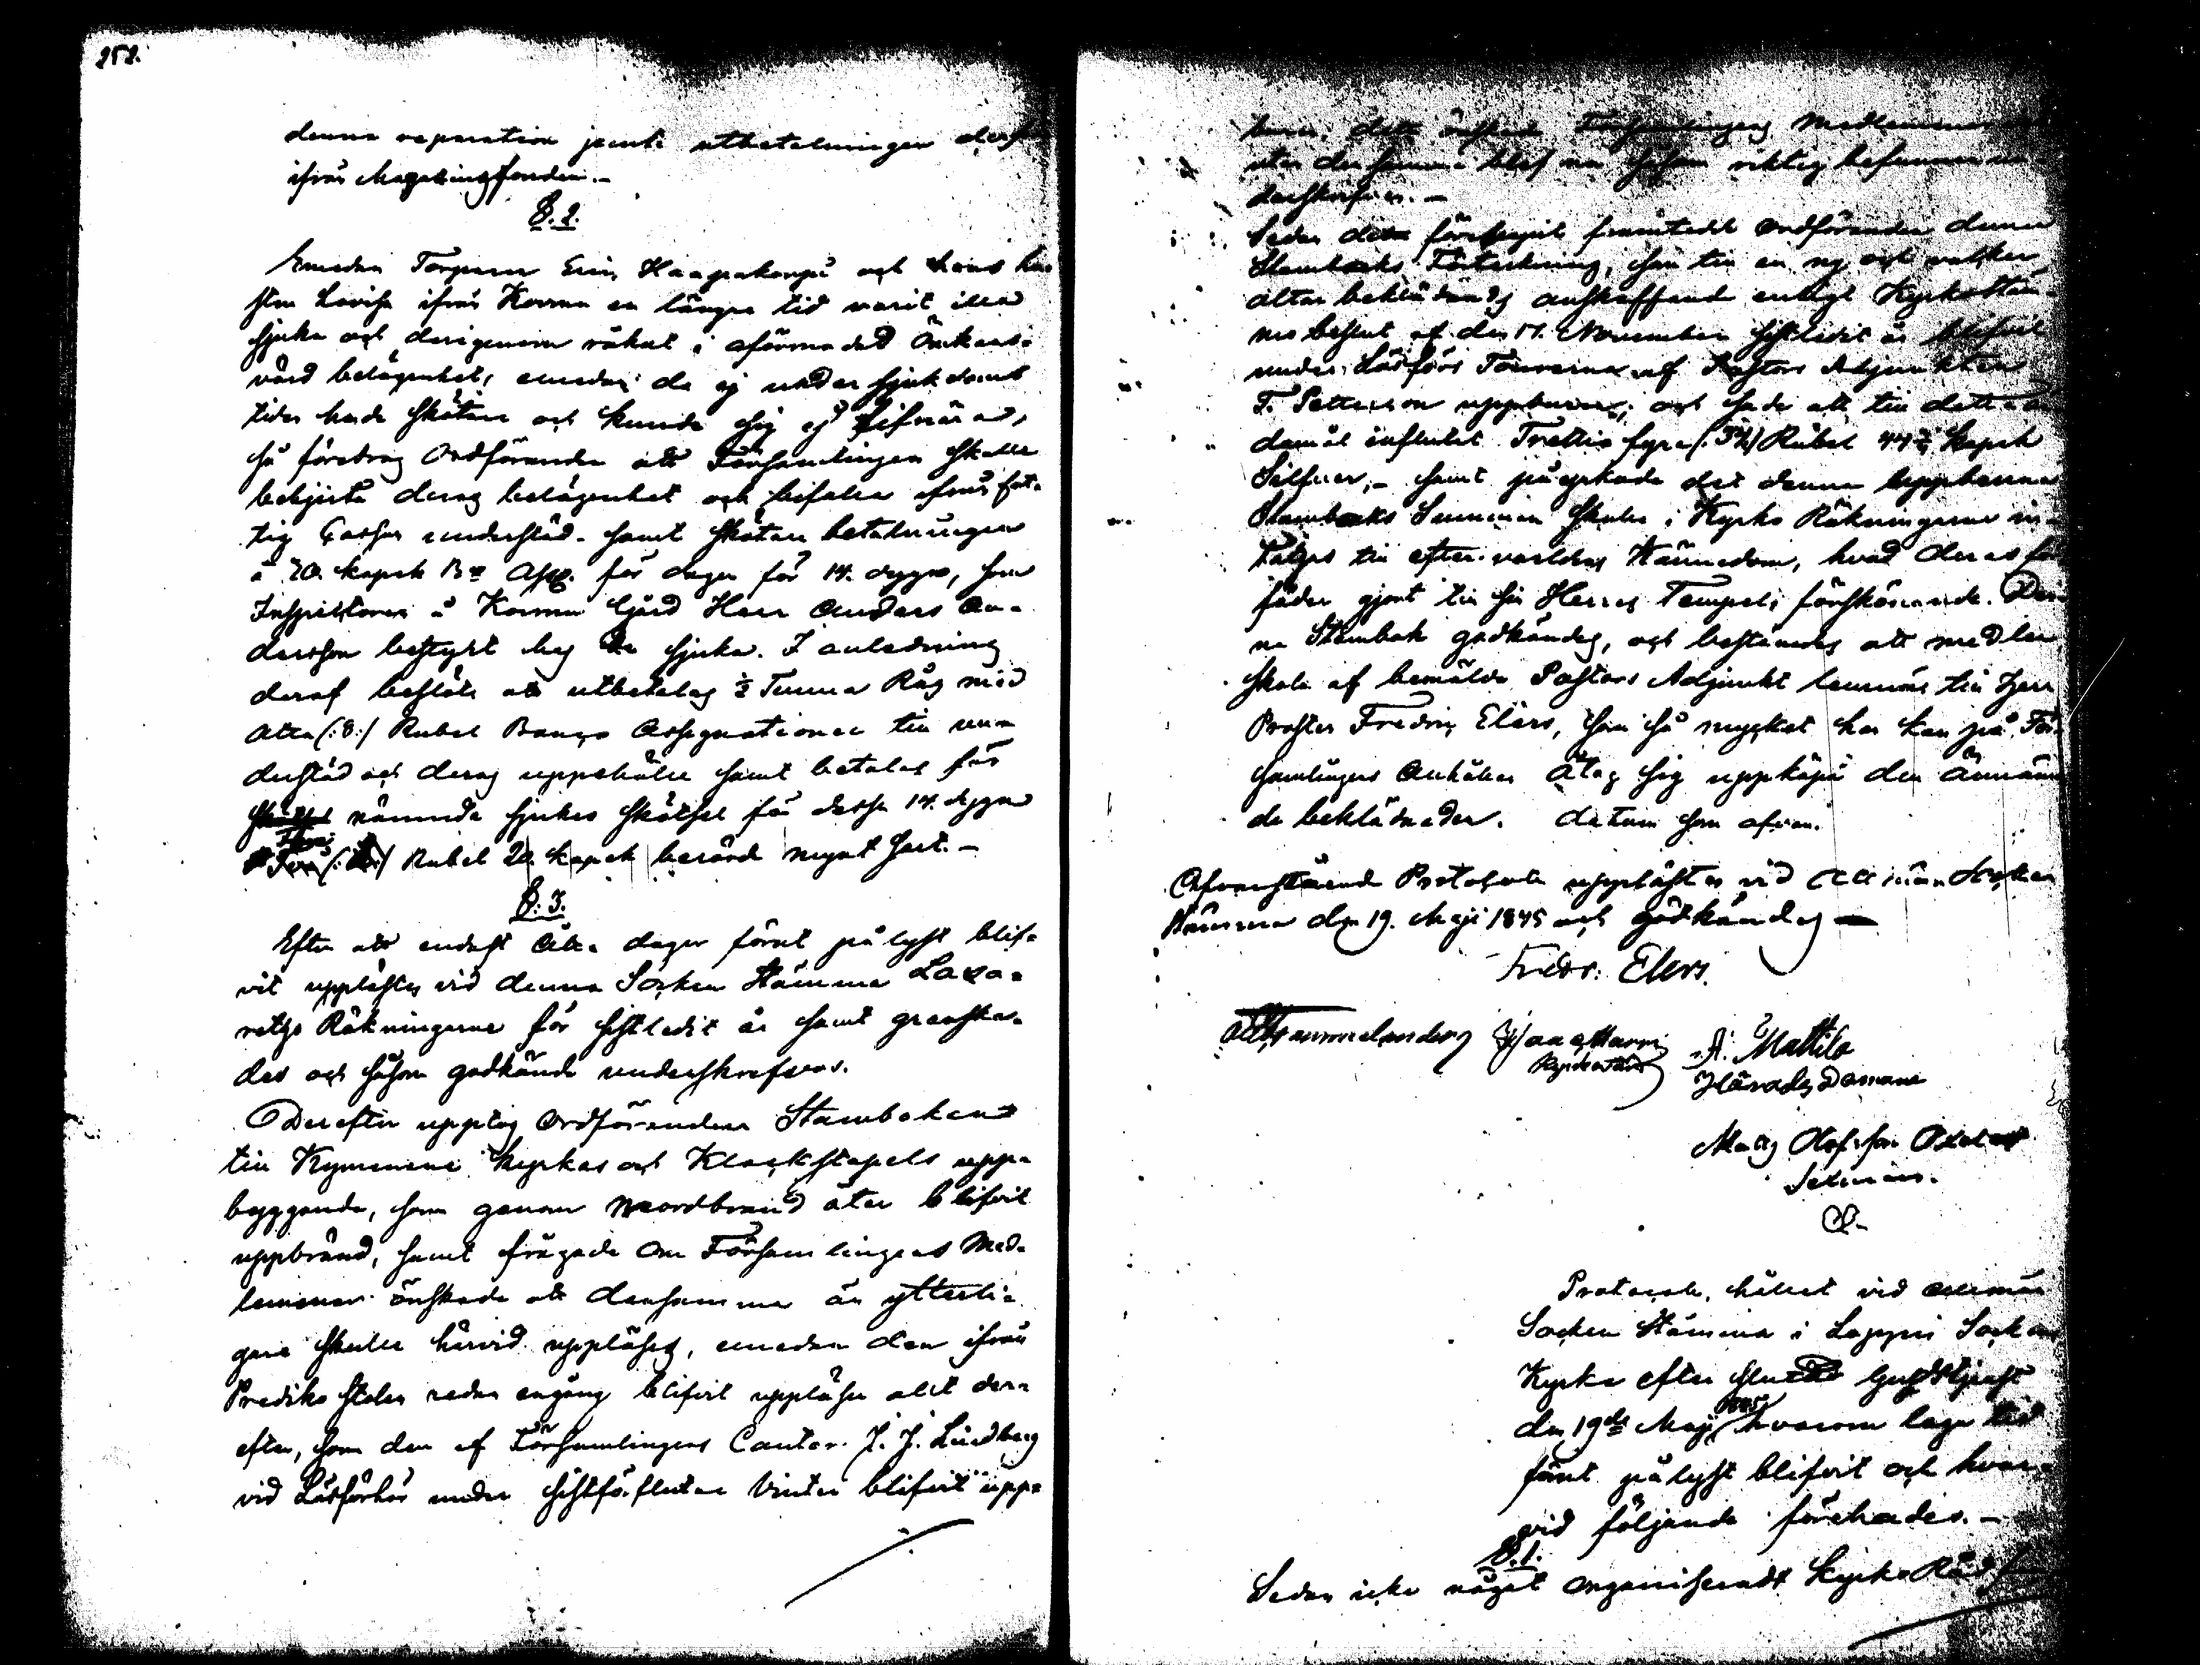 252.
denna reparation jemte utbetalningen derför
ifrån Magasinsfonden.-
§. 2.
Emedan Torparen Eric Haapakorpi och hans hu-
stru Lovisa ifrån Korma en längre tid varit illa
sjuka och derigenom råkat i oförmodad Ömkans-
värd belägenhet, emedan de ej under sjukdoms
tiden hade skötare och kunde sig ej lifnära,
så föredrog Ordföranden att Församlingen skulle
behjerta deras belägenhet och bifalla ifrån fat-
tig Cassan understöd- samt skötare betalningen
á 20. kopek B:co Ass. för dagen för 14. dygn, som
Inspektoren å Korma Gård Herr Anders An-
dersson bestyrt hos de sjuka. I anledning
deraf beslöts att utbetalas ½ Tunna Råg med
Åtta (:8:) Rubel Banco Assignationer till un-
derstöd och deras uppehälle samt betalas för
nämnde sjukes skötsel för dessa 14. dygn
Rubel 20. kopek berörd mynt sort.-
§. 3.
Efter att endast Åtta dagar förut pålyst blif-
vit upplästes vid denna Socken Stämma Laza-
retts Räkningarne för sistledit år samt granska-
des och såsom godkände underskrefvos.
Derefter upptog Ordföranden Stamboken
till Kymmene kyrkas och Klockstapels upp-
byggande, som genom mordbrand åter blifvit
uppbränd, samt frågade om Församlingens Med-
lemmar önskade att densamma än ytterli-
gare skulle härvid uppläsas, emedan den ifrån
Prediko stolen redan engång blifvit uppläsen allt der-
efter, som den af Församlingens Cantor J. J. Lindberg
vid Läsförhör under sistförflutne Vinter blifvit upp-
buren, detta önskade Församlingens Medlemmar
utan den samma blef nu såsom riktig befunnen un-
derskrifven.-
Sedan detta föregått framtedde Ordföranden denna
Stamboks Förteckning, som till en ny och vacker
altar beklädnads anskaffande enligt Kyrkostäm-
mo beslut af den 17. November sistledit år blifvit
under Läsförs Tourerna af Pastors Adjunkten
F. Petterson uppburen; och hade allt till detta än-
damål influtet Trettio fyra (:34:) Rubel 44 kopek
Silfver,- samt påyrkade det denna uppburna
Stamboks Summan skulle i Kyrko Räkningarne in-
tagas till efter verldens Kännedom, hvad deras för-
fäder gjort till sin Herres Tempels förskönande. Den-
na Stambok godkändes, och bestämdes att medlen
skola af bemälde Pastors Adjunkt lemnas till Herr
Prosten Fredric Elers, som så mycket har kan på För-
samlingens Anhållan Åtog sig uppköpa den Ämnäm-
da beklädnaden. datum som ofvan.
Ofvanstående Protocoll upplästes vid Allmän Socken
Stämma den 19. Maji 1845 och godkändes —
Fredr: Elers.
A. Mattila
Häradsdomare
Matts Olofsson
Setman.
Protocoll, hållet vid Allmän
Socken Stämma i Lappi Sockens
Kyrka efter slutad Gudstjenst
den 19de Maji 1845, hvarom laga tid
förut pålyst blifvit och hvar-
vid följande förehades.-
§. 1.
Sedan icke något organiseradt Kyrko Råd